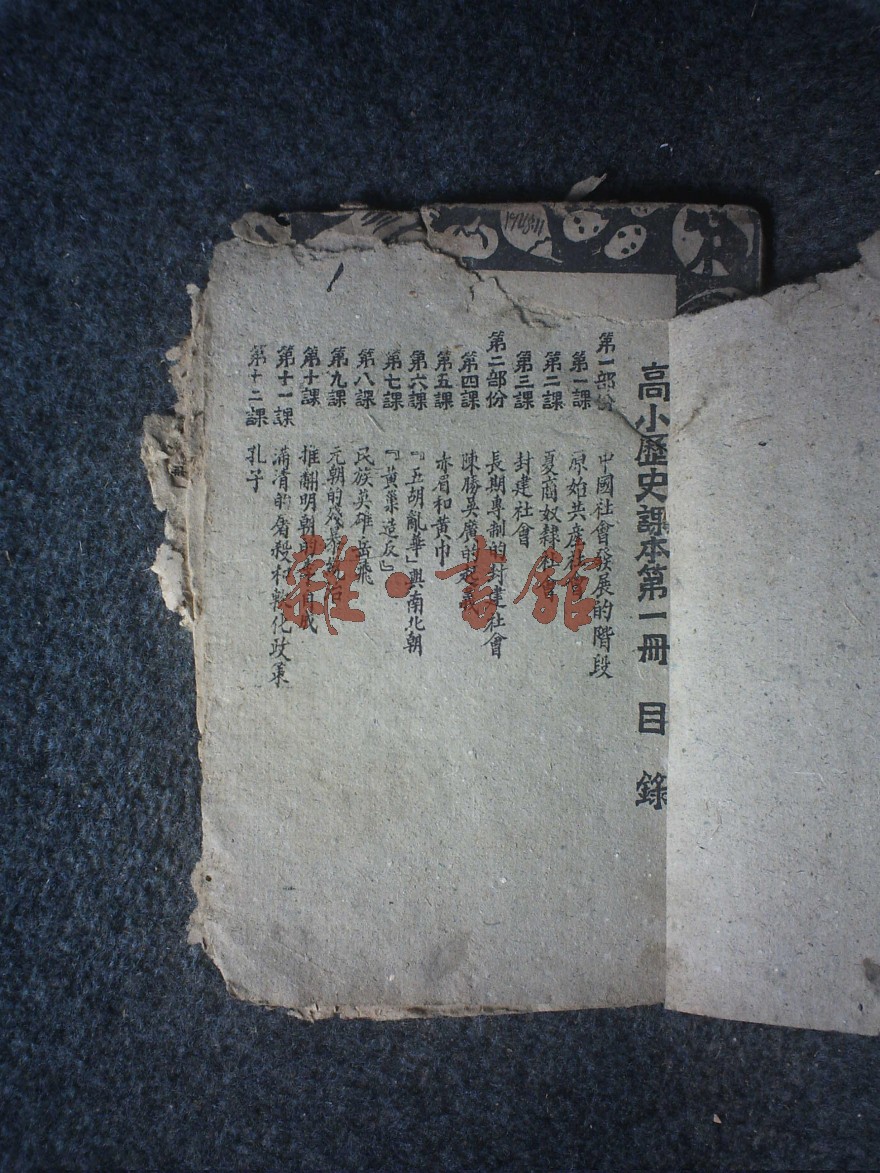 高小歷史課本第一冊 目錄
第一部份 中國社會發展的階段
第一課 原始共產社會
第二課 夏商奴隸社會
第三課 封建社會
第二部份 長期專制的封建社會
第四課 陳勝吳廣的起義
第五課 赤眉和黃巾
第六課 『五胡亂華』與南北朝
第七課 『黃巢造反』
第八課 民族英雄岳飛
第九課 元朝的殘暴統治
第十課 推翻明朝的李自成
第十一課 滿清的屠殺和軟化政策
第十二課 孔子
雜·書館